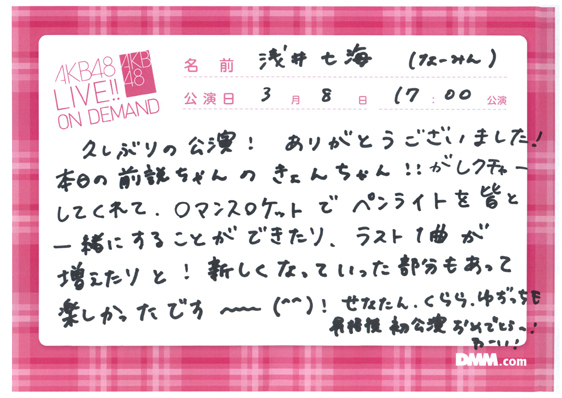 AKB48
LIVE!!
ON DEMAND
AKB
48
名前 浅井七海 (なーみん)
公演日 3月8日 17:00公演
久しぶりの公演! ありがとうございました!
本日の前説ちゃんのきょんちゃん!!がレクチャー
してくれて、ロマンスロケットでペンライトを皆と
一緒にすることができたり、ラスト1曲が
増えたりと!新しくなっていった部分もあって
楽しかったです〜〜(^^)!せなたん、くらら、ゆぢっちも
初公演おめでとう〜!
わーい!
DMM.com